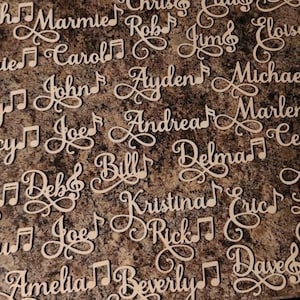 Chris
Marmie Rob Jim Eloise
Carol
John Ayden Michae
Joe Andrea Marlen
Bill Delma
Deb
Kristina Eric
Joe Rick
Amelia Beverly Dave